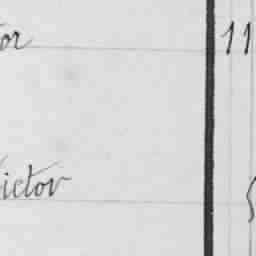 or 11
ictor